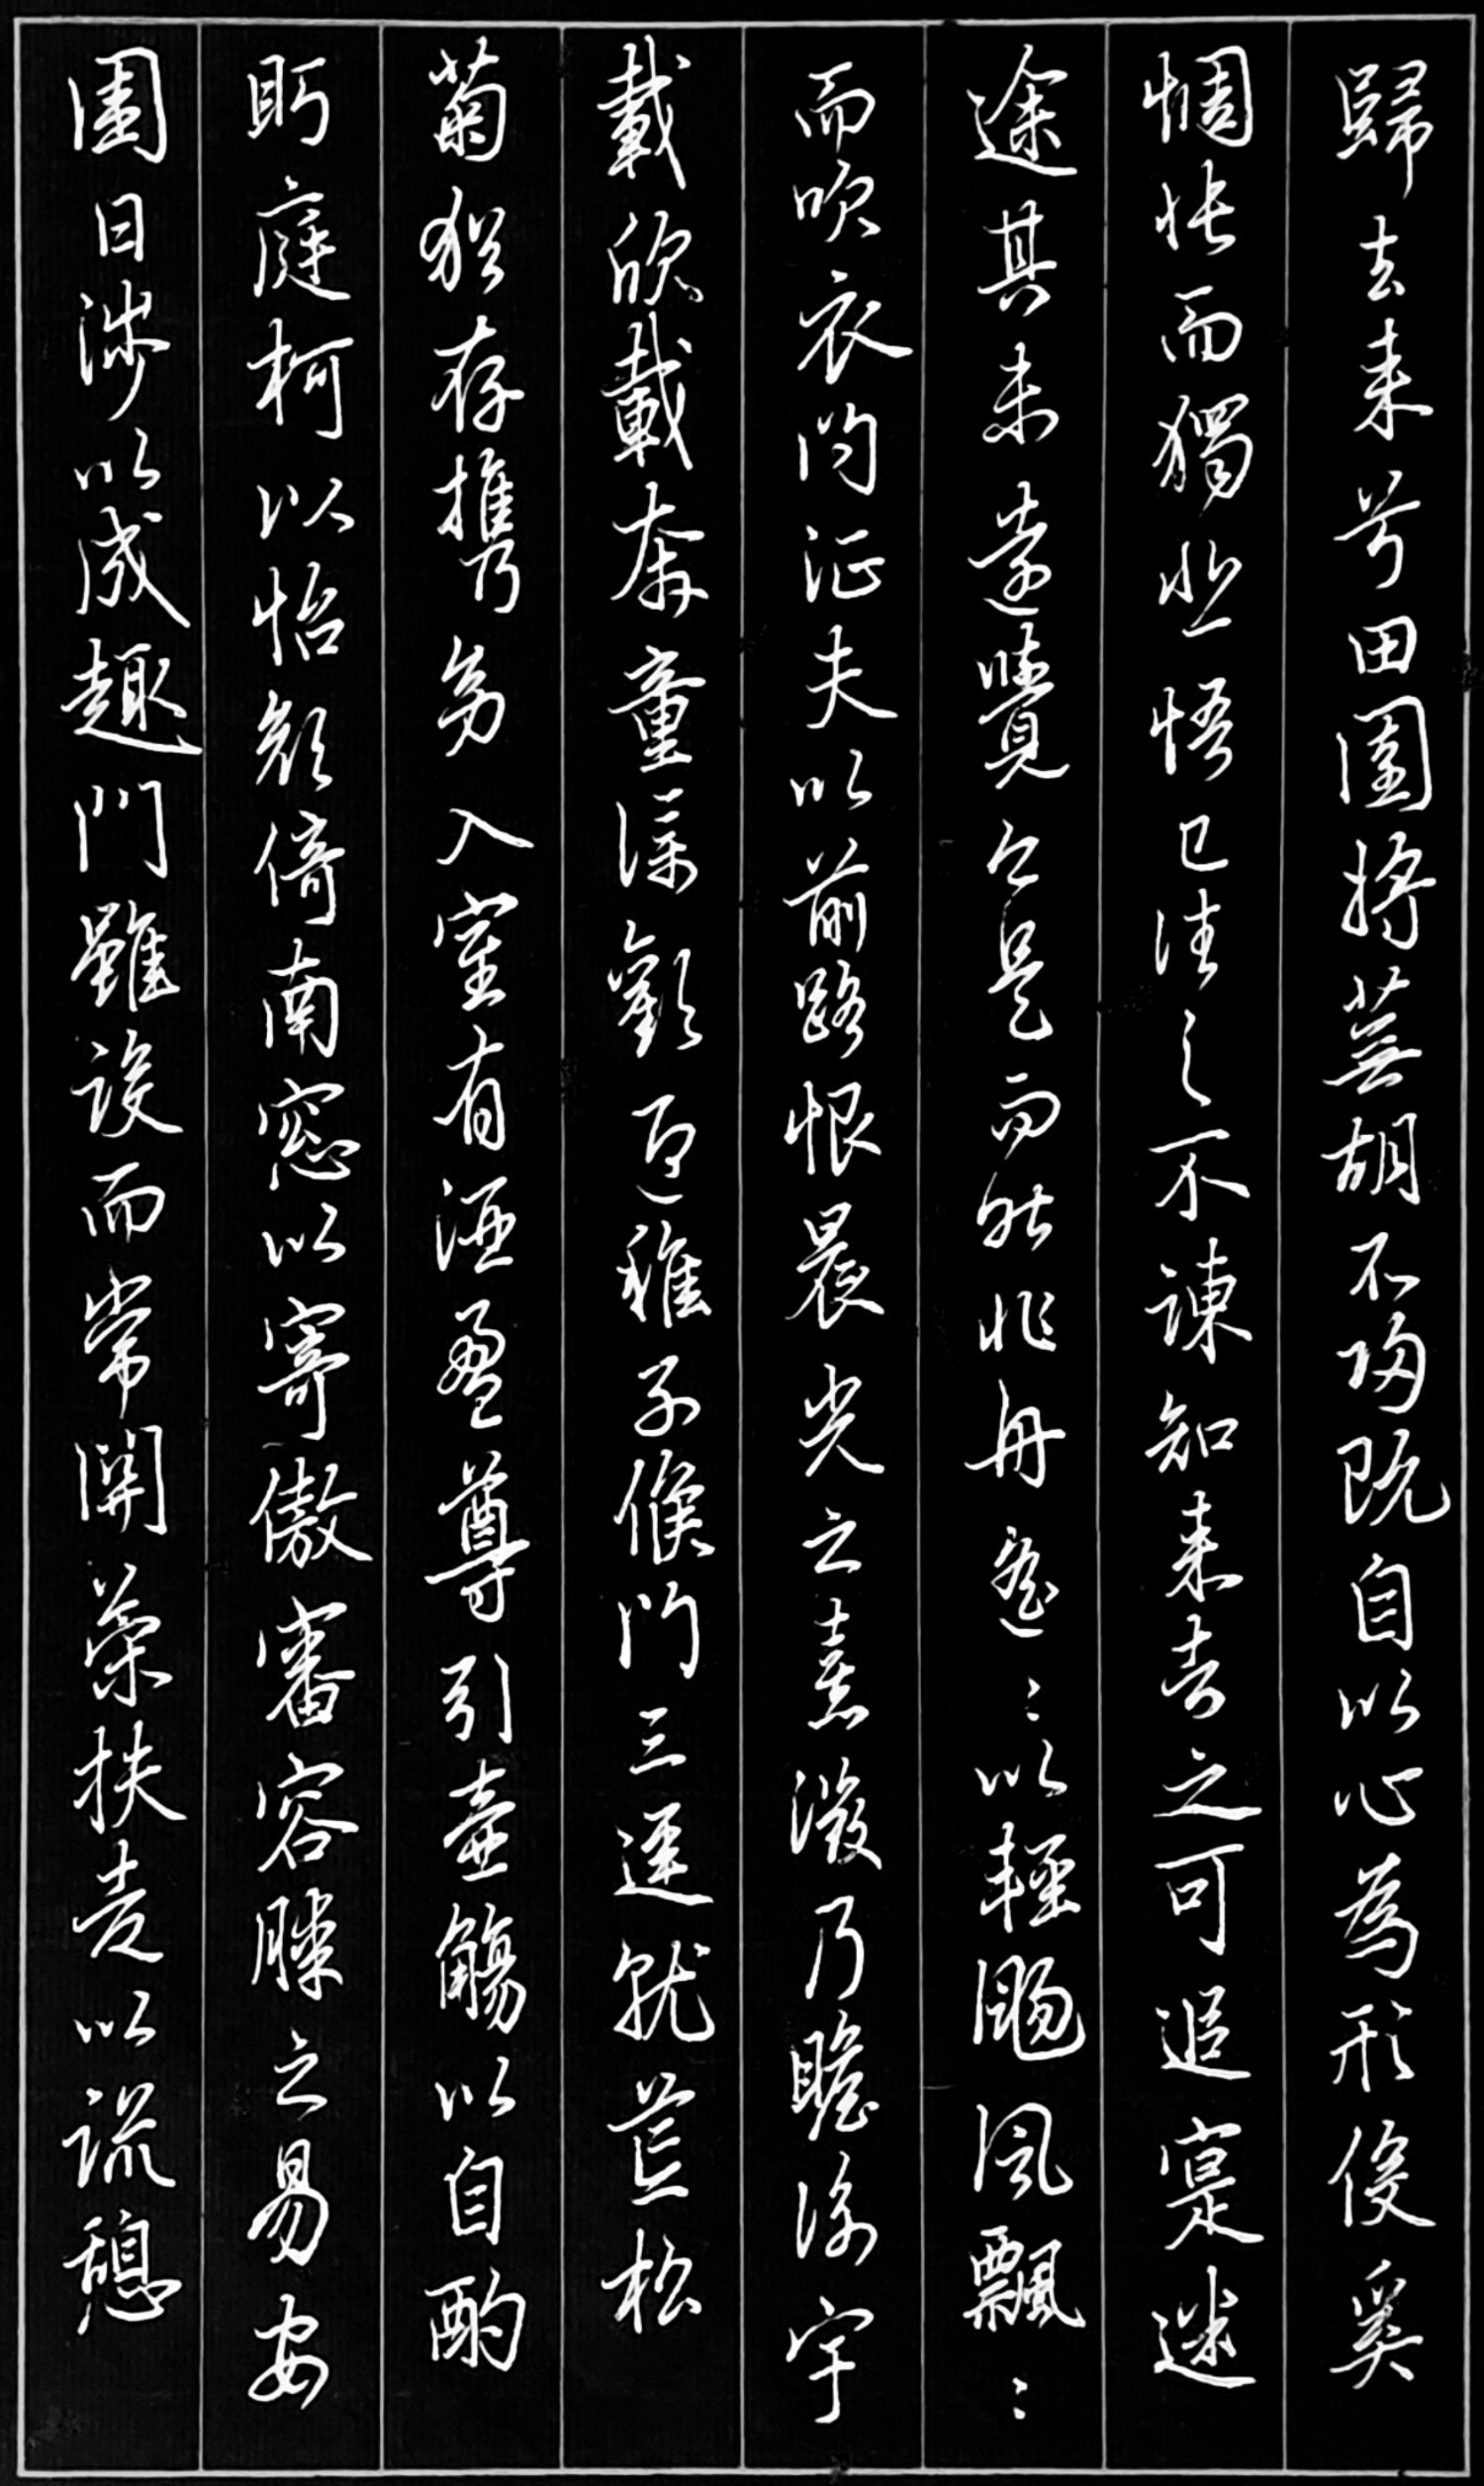 歸去来兮田園将蕪胡不歸既自以心為形役奚
惆悵而獨悲悟已往之不諫知来者之可追寔迷
途其未遠覺今是而昨非舟遙〻以輕颺風飄〻
而吹衣問征夫以前路恨晨光之熹微乃瞻衡宇
載欣載奔童僕歡迎稚子候門三逕就荒松
菊猶存攜幼入室有酒盈尊引壺觴以自酌
眄庭柯以怡顔倚南窓以寄傲審容膝之易安
園日涉以成趣門雖設而常關策扶老以流憩